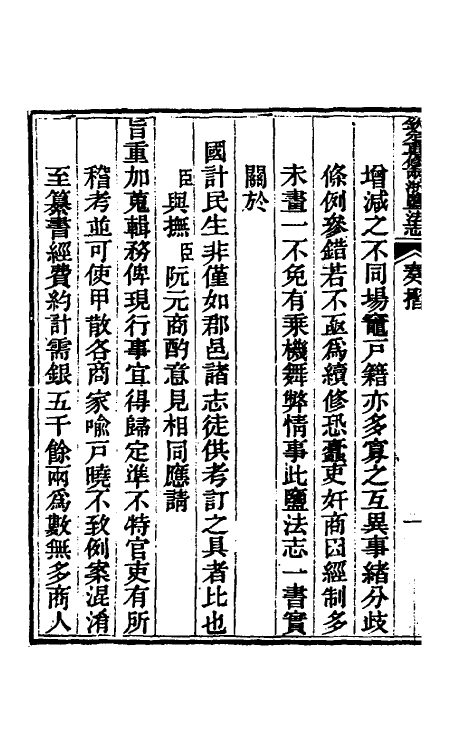 欽定重修兩浙鹽法志
奏摺
一
增減之不同場竈戶籍亦多寡之互異事緒分歧
條例參錯若不亟為續修恐蠹吏奸商因經制多
未畫一不免有乘機舞弊情事此鹽法志一書實
關於
國計民生非僅如郡邑諸志徒供考訂之具者比也
臣與撫臣阮元商酌意見相同應請
旨重加蒐輯務俾現行事宜得歸定準不特官吏有所
稽考並可使甲散各商家喩戶曉不致例案混淆
至纂書經費約計需銀五千餘兩為數無多商人